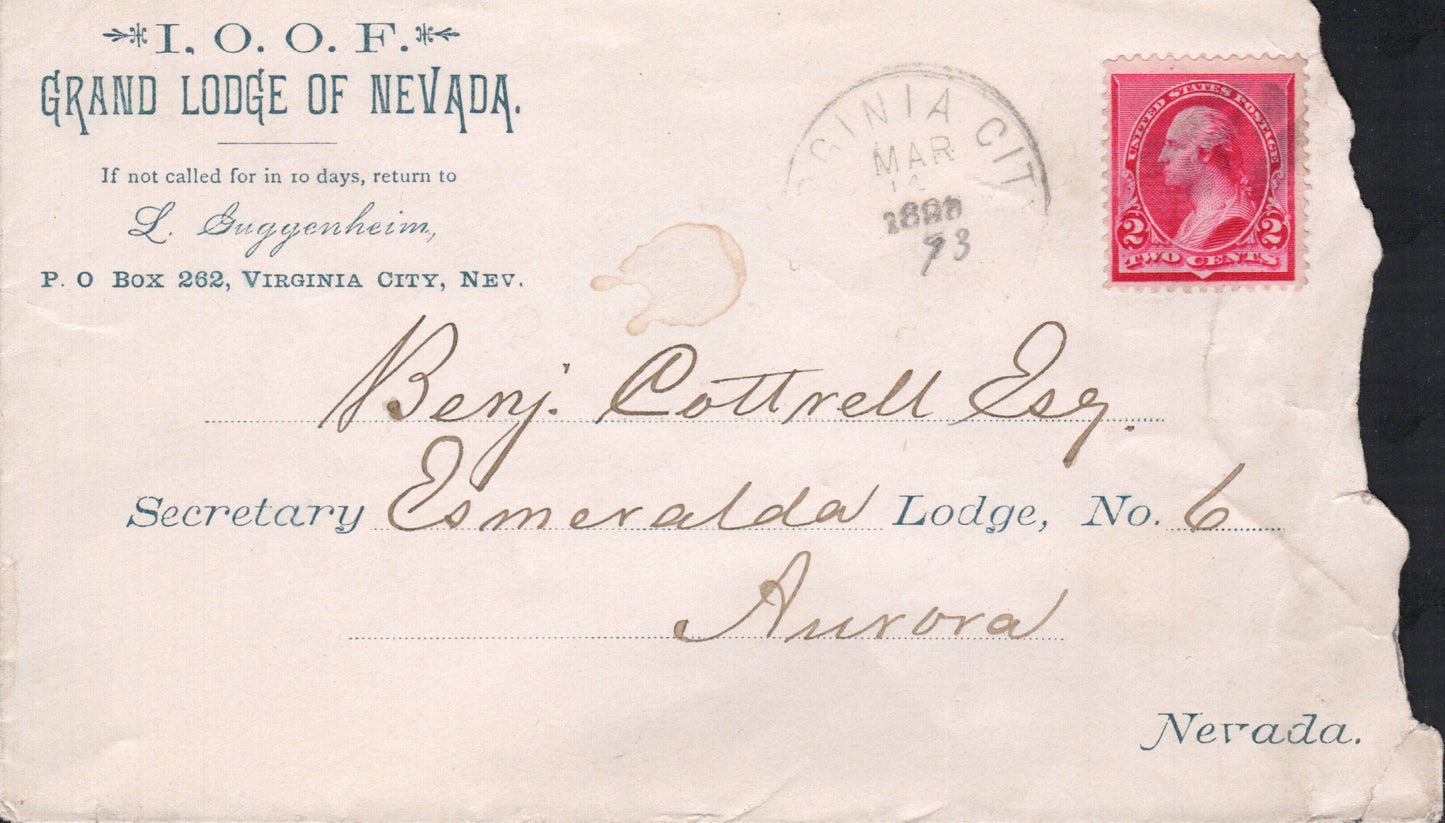 I. O. O. F.
GRAND LODGE OF NEVADA.
If not called for in 10 days, return to
L. Guggenheim,
P. O BOX 262, VIRGINIA CITY, NEV.
GINIA CIT
MAR
93
UNITED STATES POSTAGE
2 2
TWO CENTS
Benj. Cottrell Esq.
Secretary Esmeralda Lodge, No. 6
Aurora
Nevada.